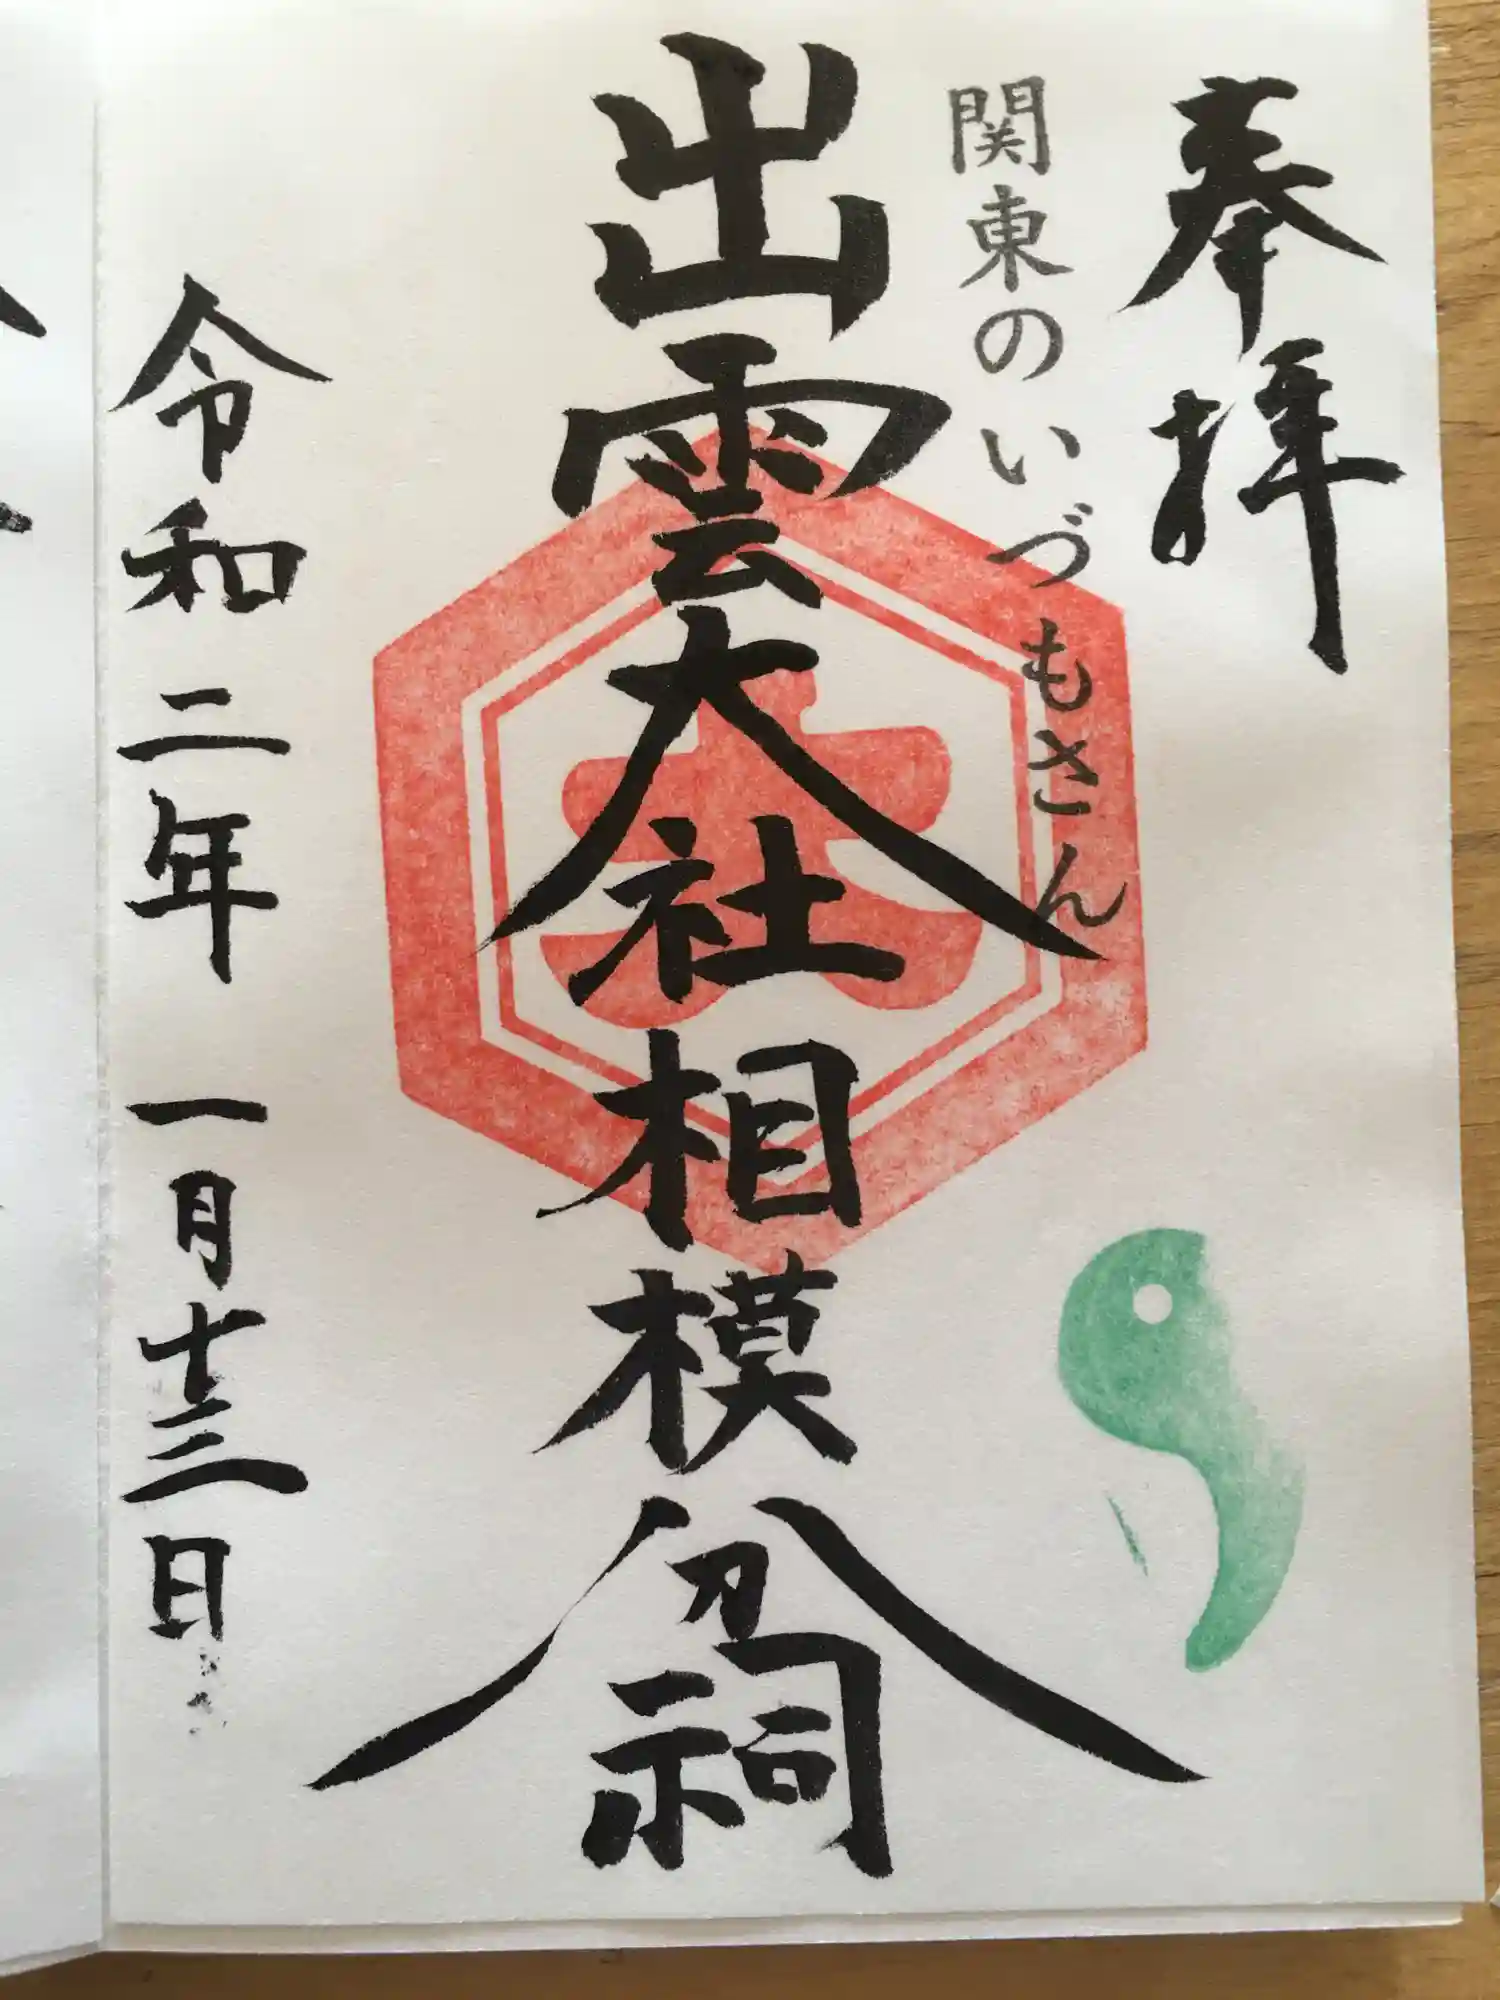 奉拝
関東のいづもさん
出雲大社相模分祠
大
令和二年 一月十三日